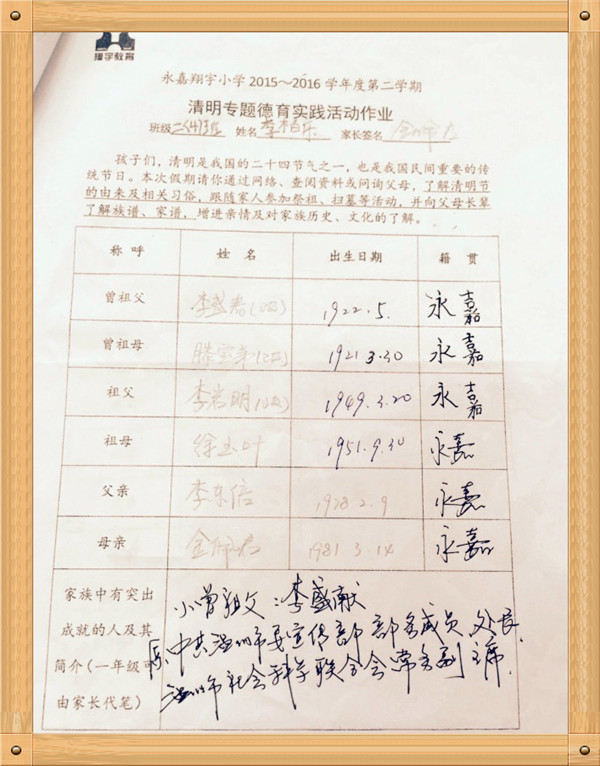 翔宇教育
永嘉翔宇小学 2015～2016 学年度第二学期
清明专题德育实践活动作业
班级 二(4)班 姓名 李柏乐 家长签名 金佩
孩子们，清明是我国的二十四节气之一，也是我国民间重要的传
统节日。本次假期请你通过网络、查阅资料或问询父母，了解清明节
的由来及相关习俗，跟随家人参加祭祖、扫墓等活动，并向父母长辈
了解族谱、家谱，增进亲情及对家族历史、文化的了解。
称 呼 姓 名 出生日期 籍 贯
曾祖父 李盛 1922.5. 永嘉
曾祖母 滕 1921 3.30 永嘉
祖父 李岩明 1949.3.20 永嘉
祖母 徐玉叶 1951.9.30 永嘉
父亲 李东信 1978 2.9 永嘉
母亲 金佩 1981 3 14 永嘉
家族中有突出
成就的人及其
简介（一年级可
由家长代笔）
小曾祖父：李盛献
原中共温州市委宣传部 部务成员 处长
温州市社会科学联合会常务副主席.